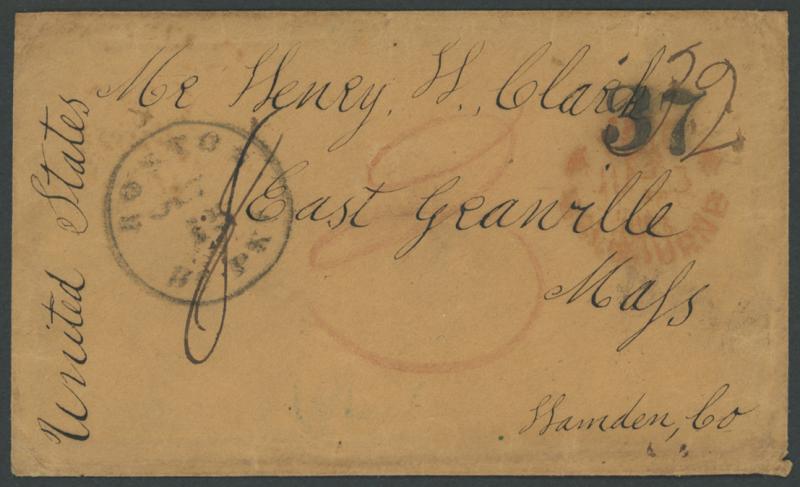 Mr Henry, W, Clark
East Granville
Mass
Hamden, Co
United States
BOSTON
BR. PK
37
8
3
MELBOURNE